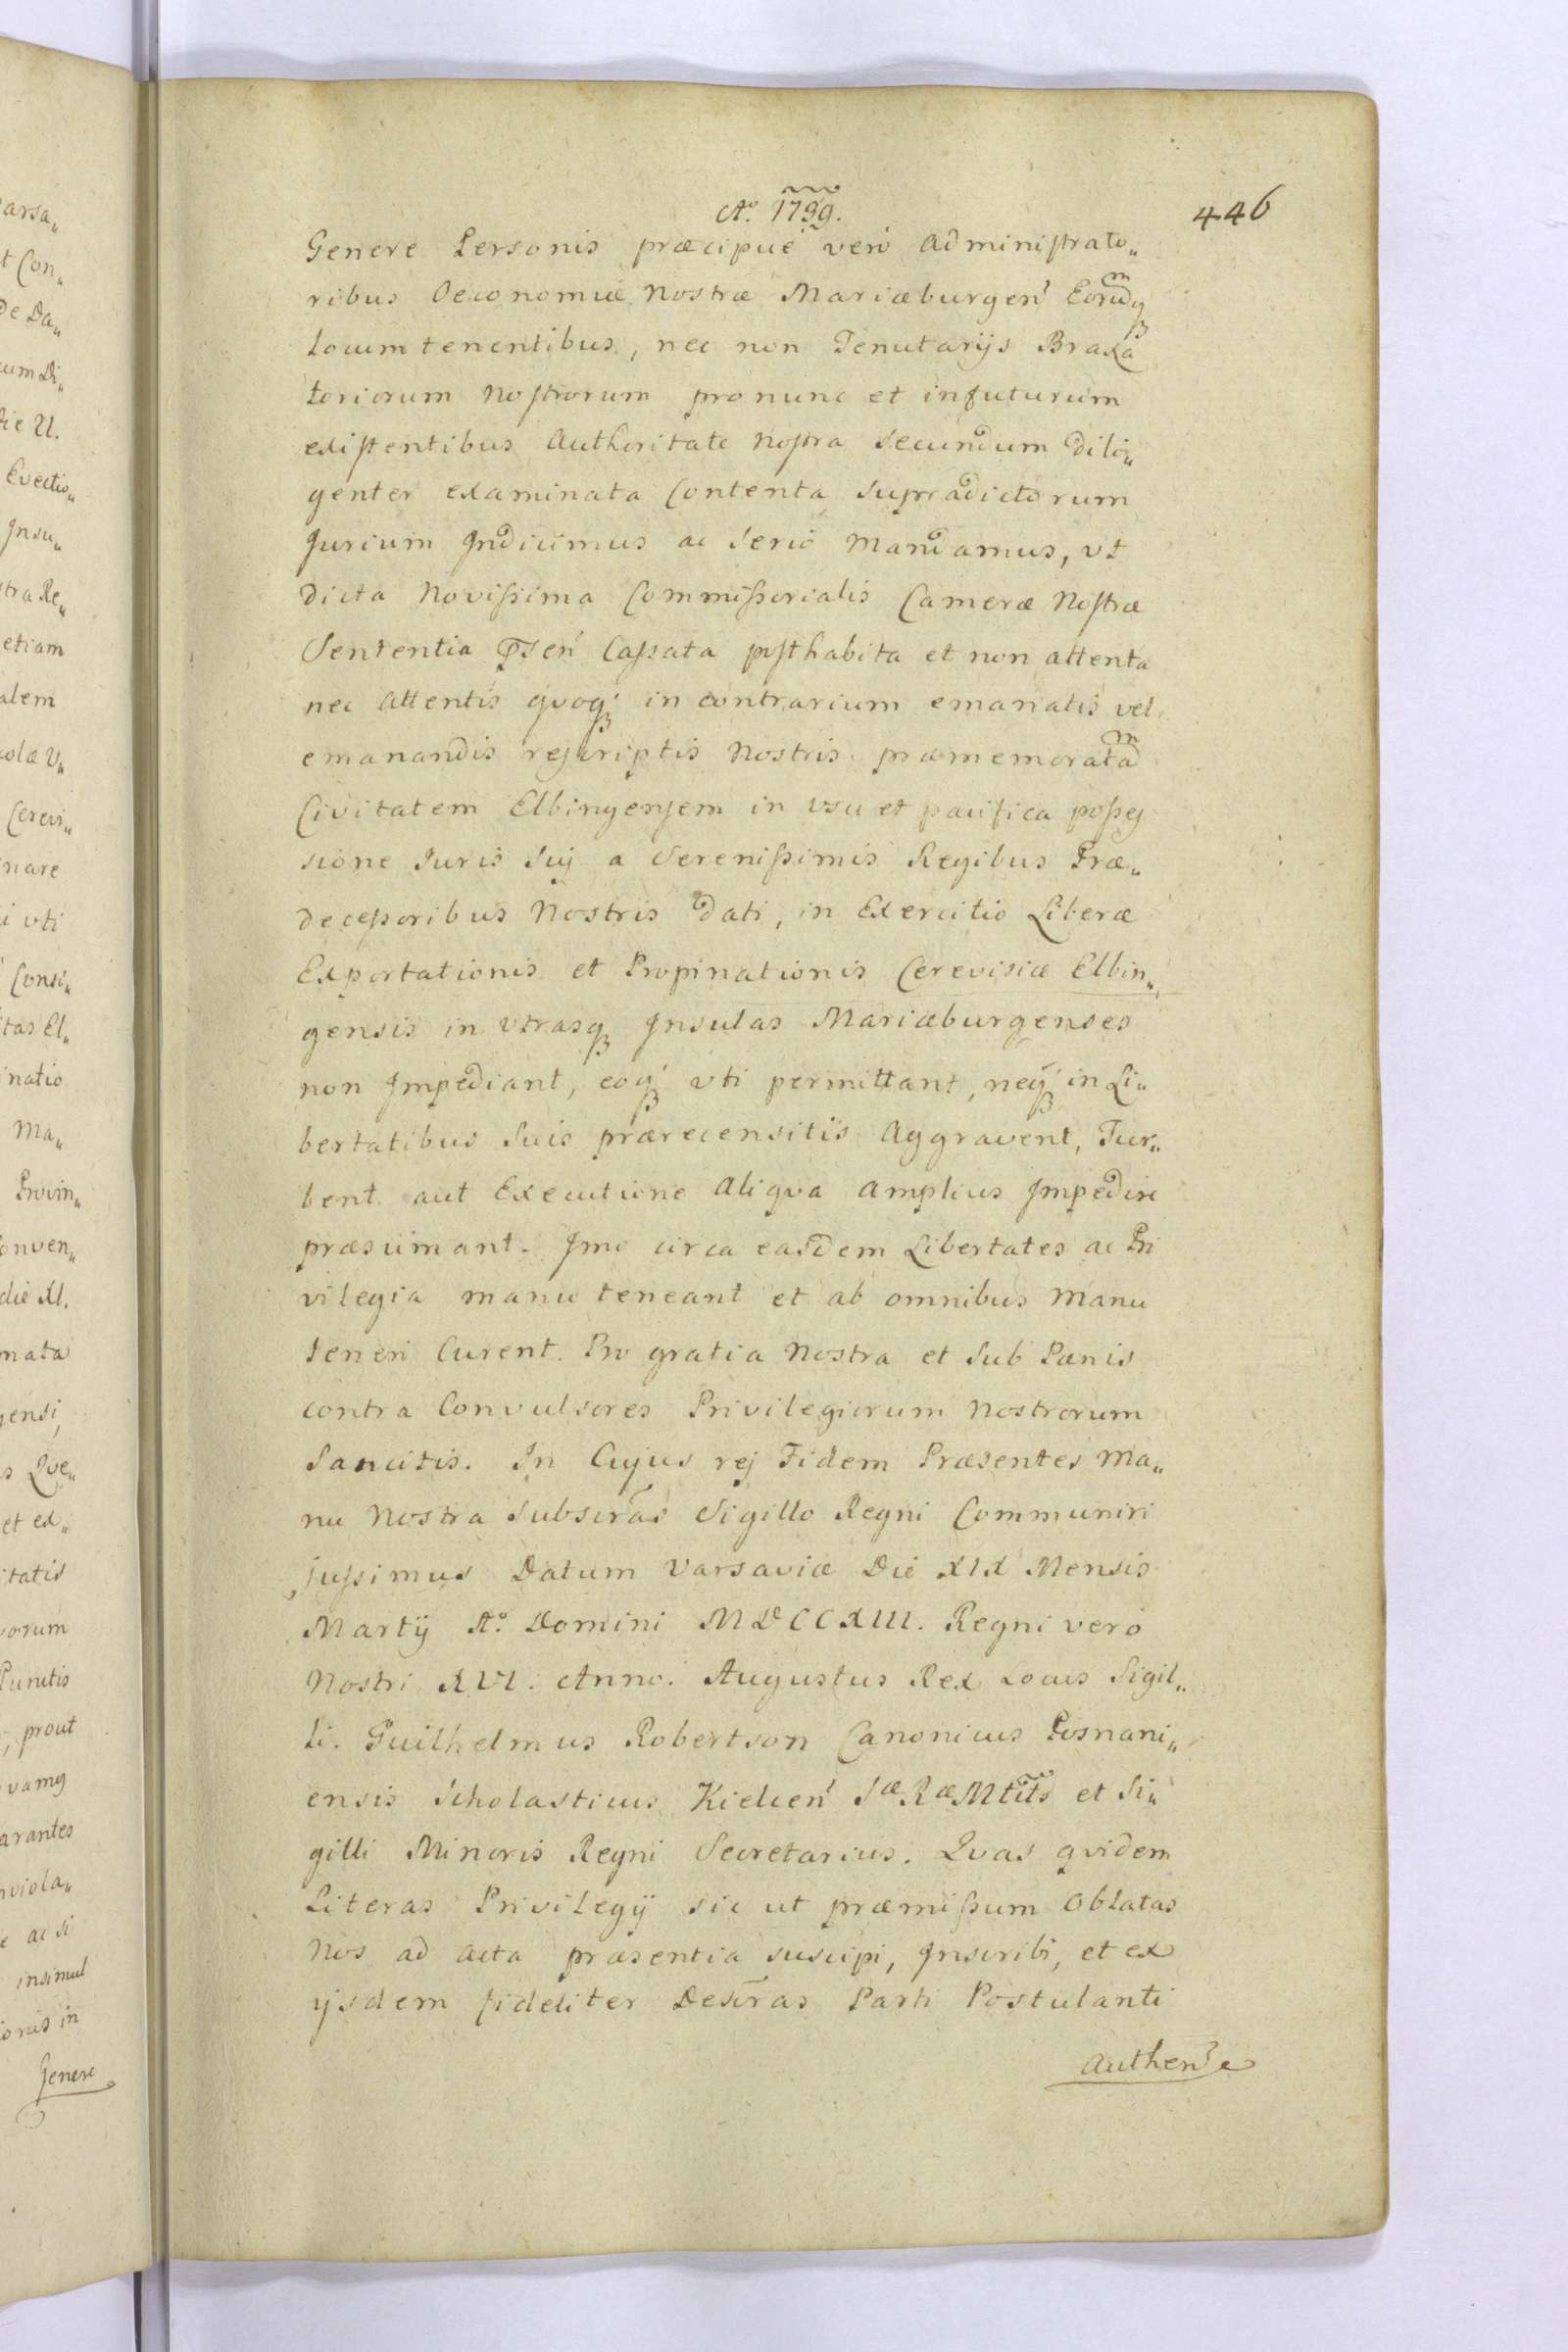 Aº. 1739.
446
Genere Personis præcipue verò Administrato„
ribus Oeconomiæ Nostræ Mariæburgen̕ Eorumdq
Locumtenentibus, nec non Tenutarijs Braxa
toriorum Nostrorum pro nunc et infuturum
existentibus Authoritate Nostra Secundum Dili„
genter examinata Contenta Supradictorum
Jurium Indicimus ac Seriò Mandamus, vt
Dicta Novissima Commissorialis Cameræ Nostræ
Sententia Cassata posthabita et non attenta
nec Attentis qvoq̕ in contrarium emanatis vel
emanandis rescriptis Nostris præmemoratam
Civitatem Elbingensem in vsu et pacifica posses
sione Juris Suj a Serenissimis Regibus Præ„
decessoribus Nostris dati, in Exercitio Liberæ
Exportationis et Propinationis Cerevisiæ Elbin„
gensis in vtrasq Insulas Mariæburgenses
non Impediant, eoq̕ vti permittant, neq̕ in Li„
bertatibus Suis prærecensitis Aggravent, Tur„
bent aut Executione Aliqva Amplius Impedire
præsumant. Imo circa easdem Libertates ac Pri
vilegia manu teneant et ab omnibus Manu
teneri Curent. Pro gratia Nostra et Sub Pænis
contra Convulsores Privilegiorum Nostrorum
Sancitis. In Cujus rej Fidem Præsentes Ma„
nu Nostra Subscr̃as Sigillo Regni Communiri
jussimus Datum Varsaviæ Die XIX Mensis
Martij Aº. Domini MDCCXIII. Regni vero
Nostri XVI. Anno. Augustus Rex Locus Sigil„
li. Guilhelmus Robertson Canonicus Posnani„
ensis Scholasticus Kielcen̕ Sæ Ræ Mttis et Si„
gilli Minoris Regni Secretarius. Qvas qvidem
Literas Privilegij sic ut præmissum Oblatas
Nos ad Acta præsentia suscipi, Inscribi, et ex
ijsdem fideliter Descr̃as Parti Postulanti
Authen̕e
arsa„
t Con„
De Da„
cum Di„
die 21.
Evectio„
Insu„
stra Re„
etiam
alem
colæ V„
Cerevi„
inare
i vti
Consi„
itas El„
inatio
Ma„
Provin„
onven„
die XI.
mata
gensi,
s Qve„
et ex„
itatis
vorum
Punctis
, prout
vamq
arantes
nviola„
e ac si
insimul
ionis in
Genere